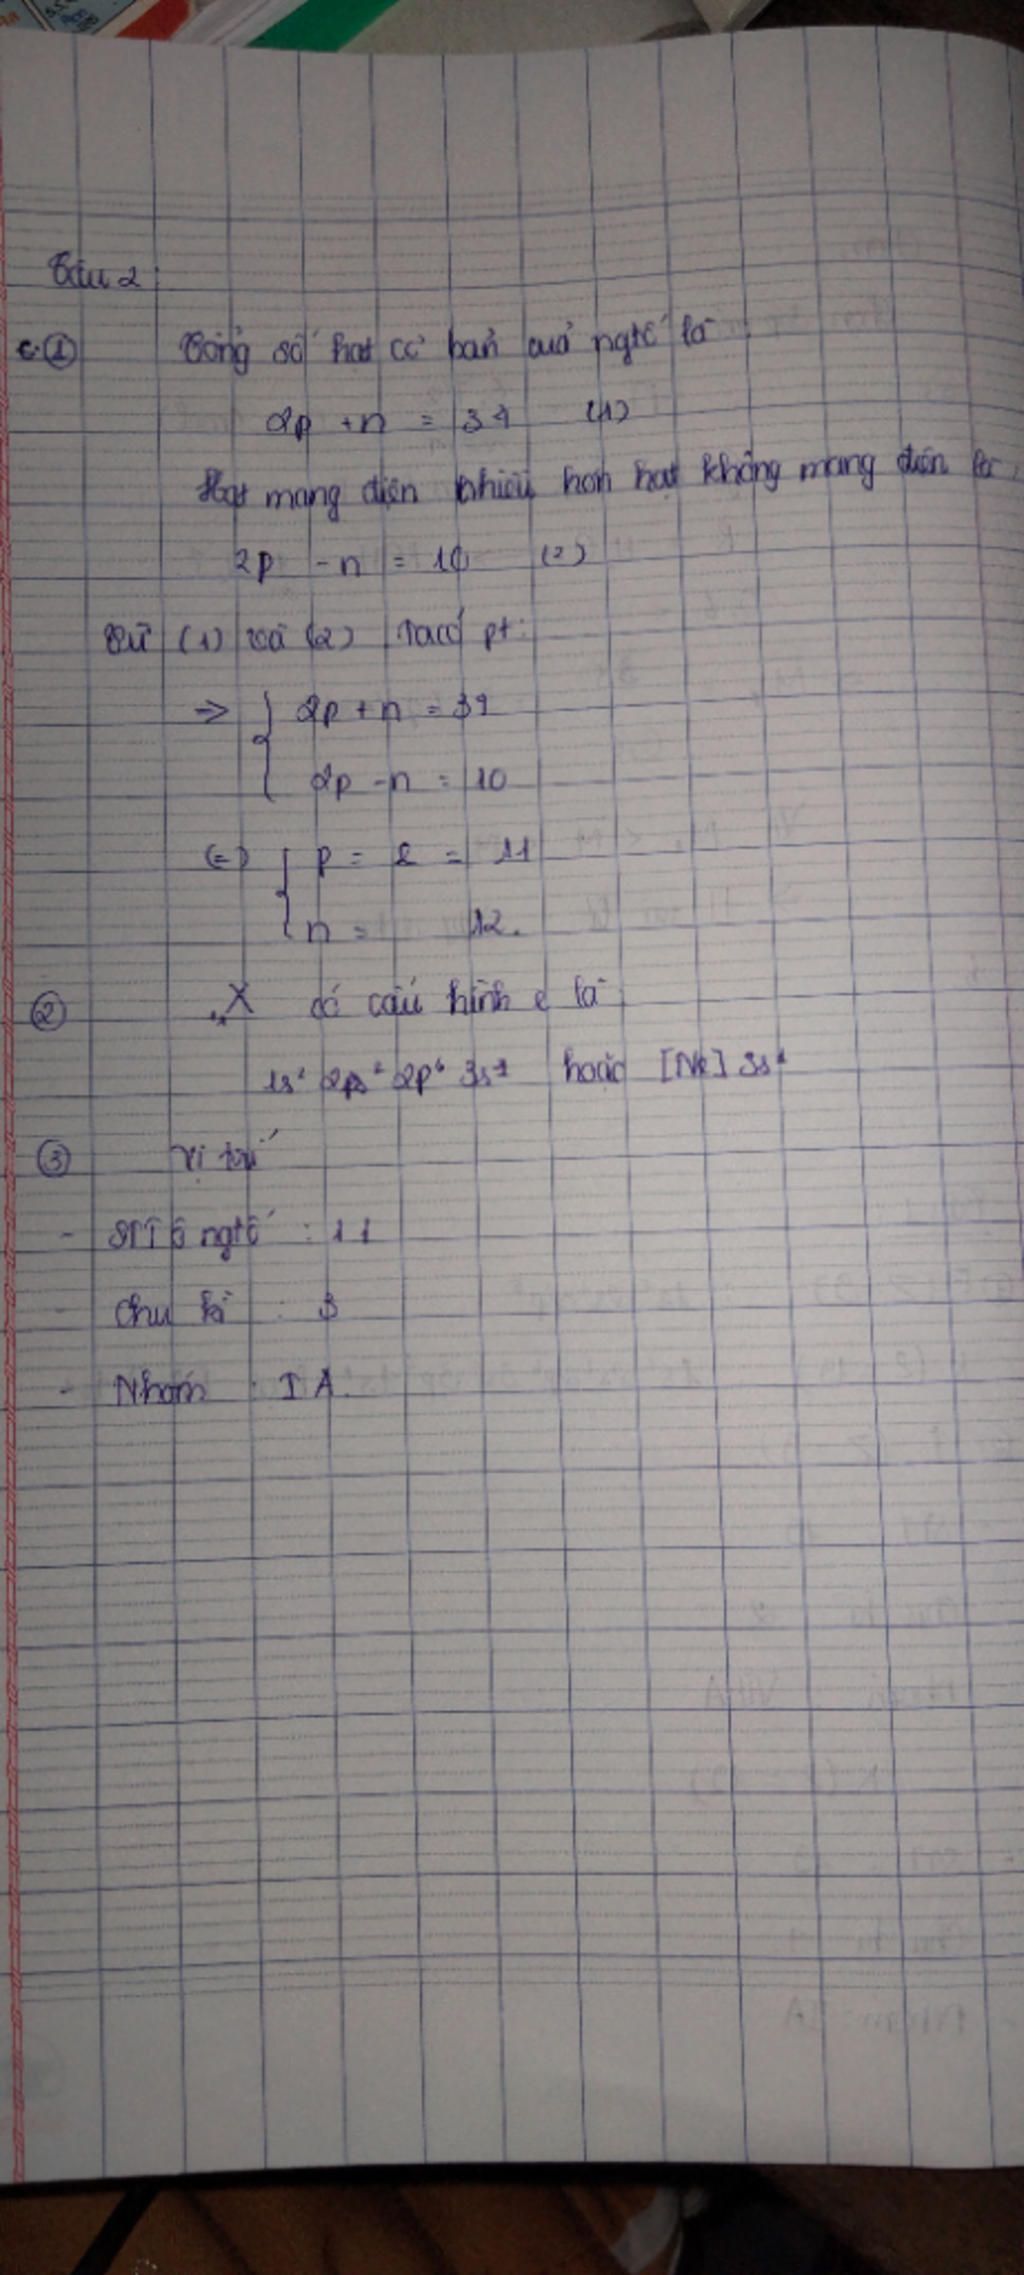 Câu 2:
c. ① Tổng số hạt cơ bản của ngtố là
2p + n = 34 (1)
Hạt mang điện nhiều hơn hạt không mang điện là
2p - n = 10 (2)
Từ (1) và (2) Ta có pt:
=> { 2p + n = 34
2p - n = 10
<=> { p = e = 11
n = 12.
② X có cấu hình e là
1s² 2s² 2p⁶ 3s¹ hoặc [Ne] 3s¹
③ Vị trí
- STT ô ngtố : 11
- Chu kì : 3
- Nhóm : IA.